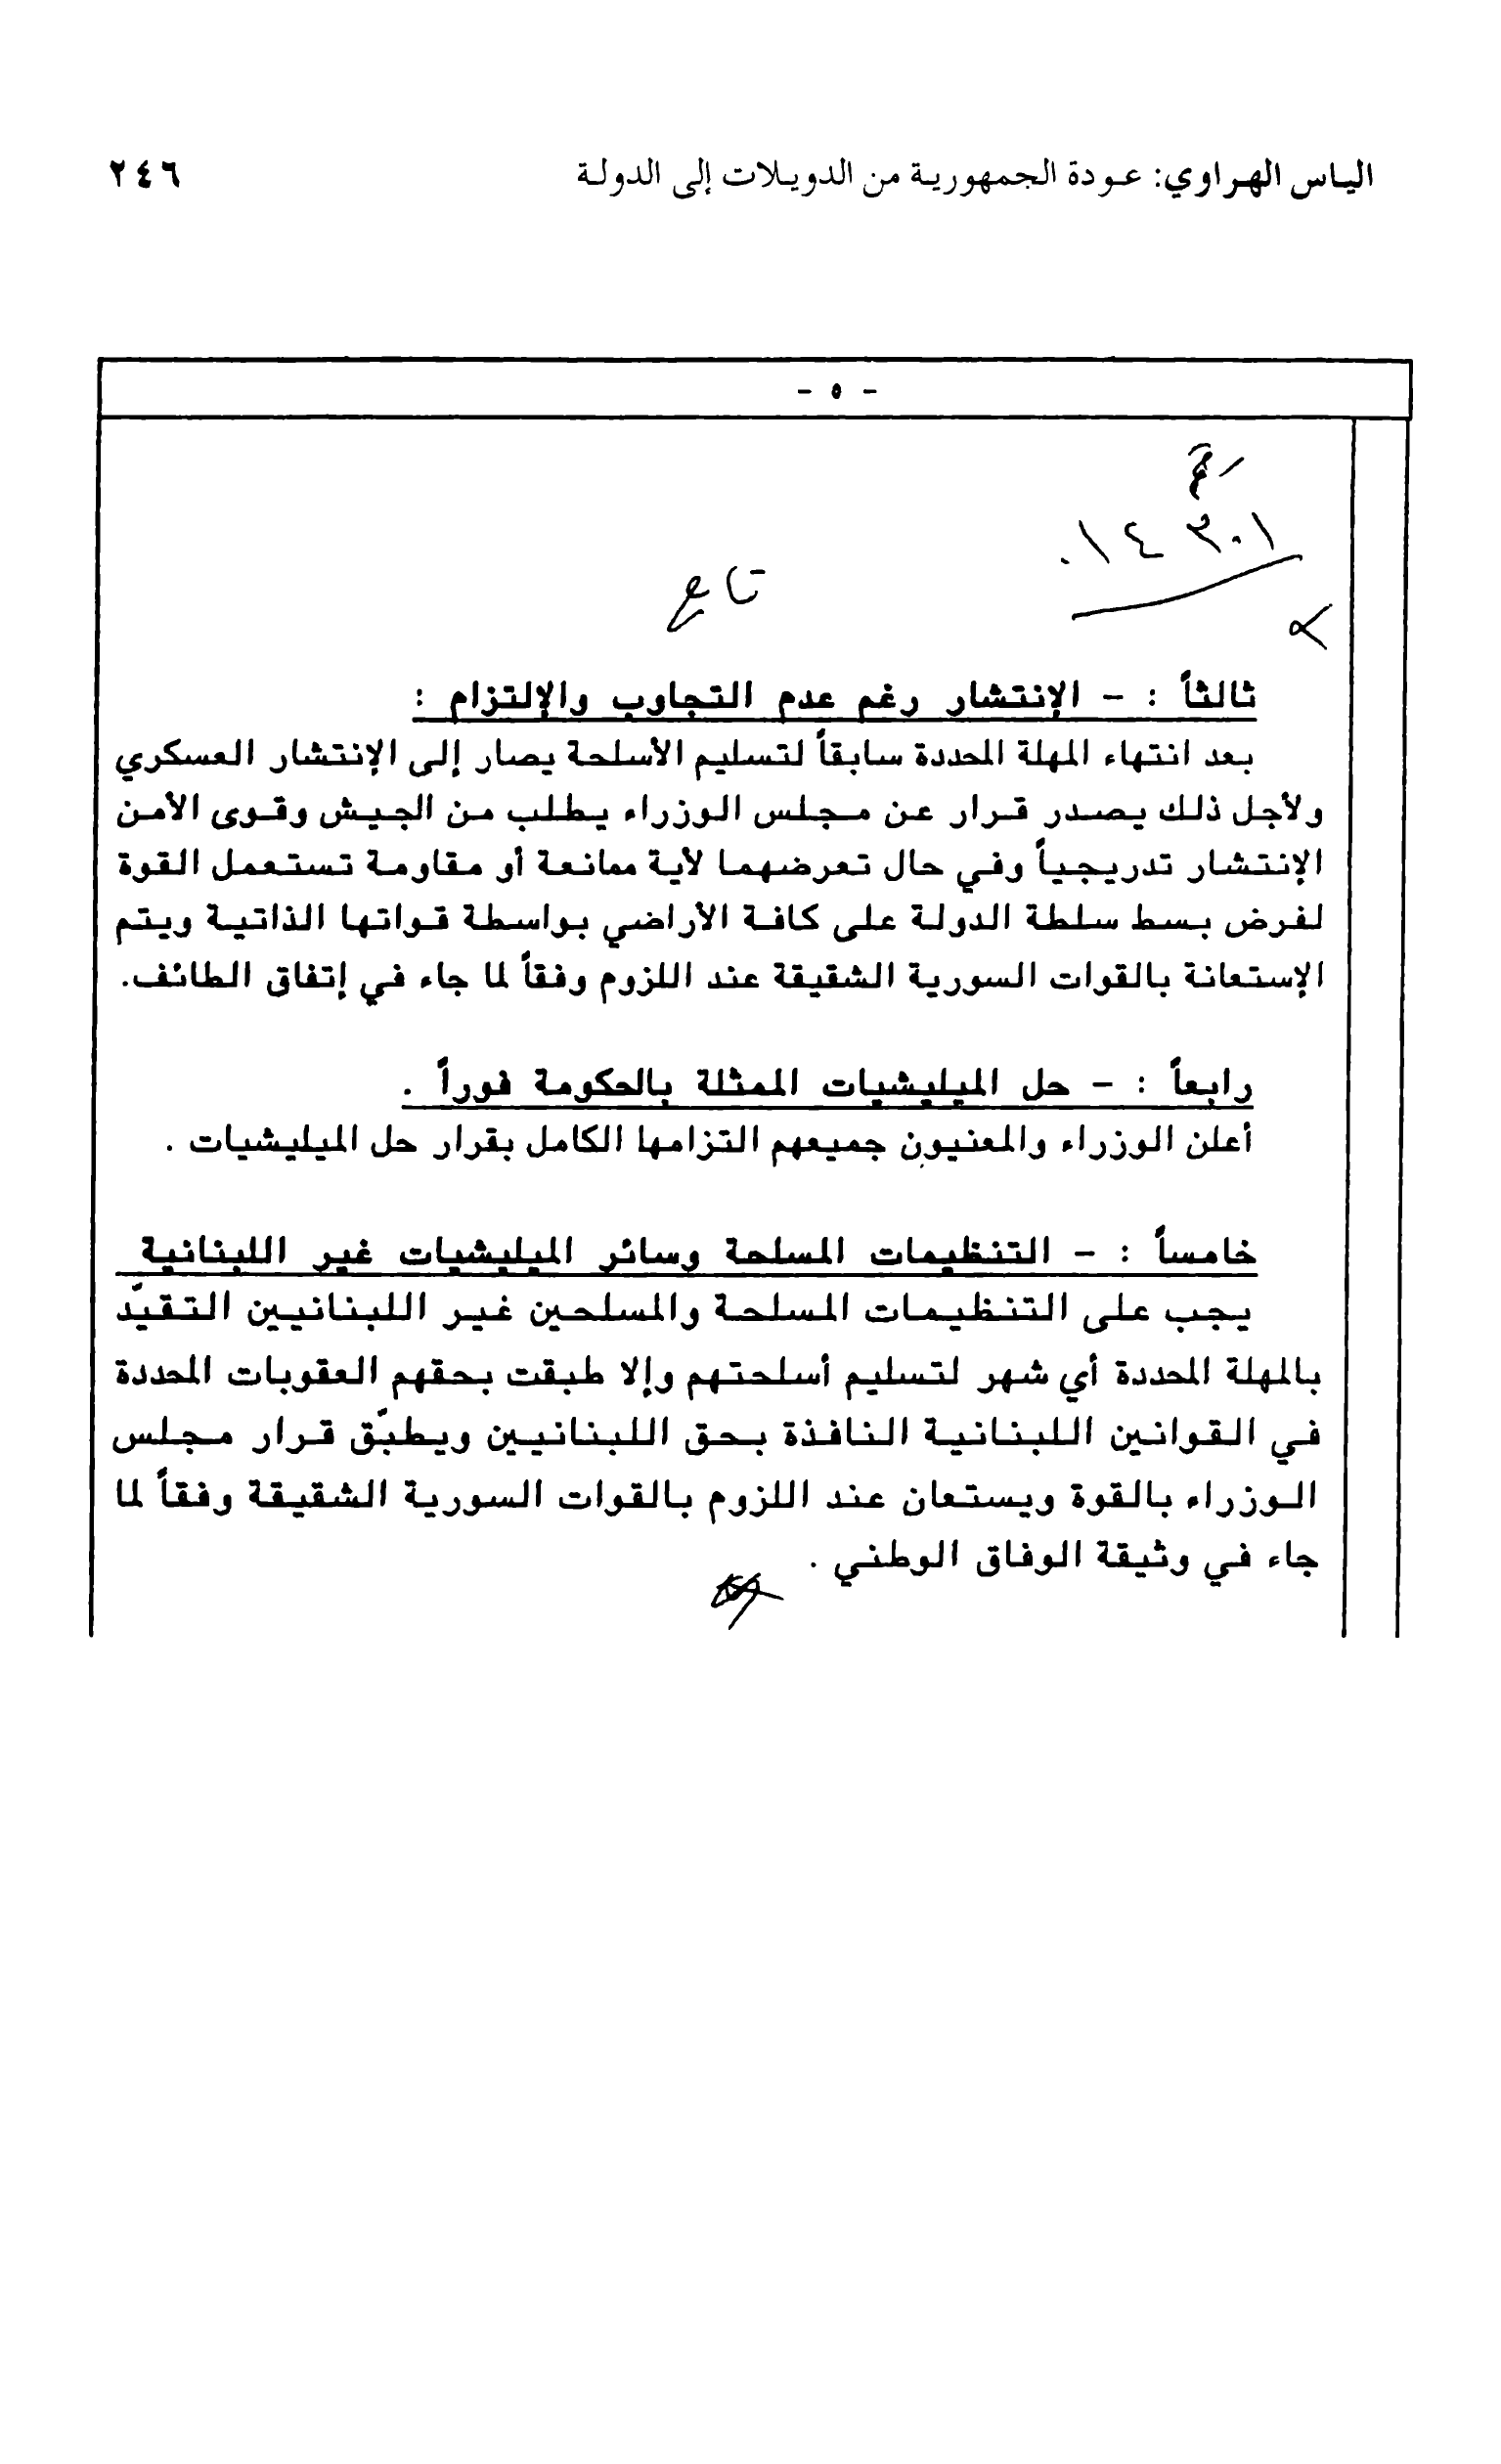 الياس الهراوي: عودة الجمهورية من الدويلات إلى الدولة ٢٤٦
- ٥ -
تابع
ثالثاً : - الإنتشار رغم عدم التجاوب والإلتزام :
بعد انتهاء المهلة المحددة سابقاً لتسليم الأسلحة يصار إلى الإنتشار العسكري
ولأجل ذلك يصدر قرار عن مجلس الوزراء يطلب من الجيش وقوى الأمن
الإنتشار تدريجياً وفي حال تعرضهما لأية ممانعة أو مقاومة تستعمل القوة
لفرض بسط سلطة الدولة على كافة الأراضي بواسطة قواتها الذاتية ويتم
الإستعانة بالقوات السورية الشقيقة عند اللزوم وفقاً لما جاء في إتفاق الطائف.
رابعاً : - حل الميليشيات الممثلة بالحكومة فوراً .
أعلن الوزراء والمعنيون جميعهم التزامها الكامل بقرار حل الميليشيات .
خامساً : - التنظيمات المسلحة وسائر الميليشيات غير اللبنانية
يجب على التنظيمات المسلحة والمسلحين غير اللبنانيين التقيّد
بالمهلة المحددة أي شهر لتسليم أسلحتهم وإلا طبقت بحقهم العقوبات المحددة
في القوانين اللبنانية النافذة بحق اللبنانيين ويطبّق قرار مجلس
الوزراء بالقوة ويستعان عند اللزوم بالقوات السورية الشقيقة وفقاً لما
جاء في وثيقة الوفاق الوطني .